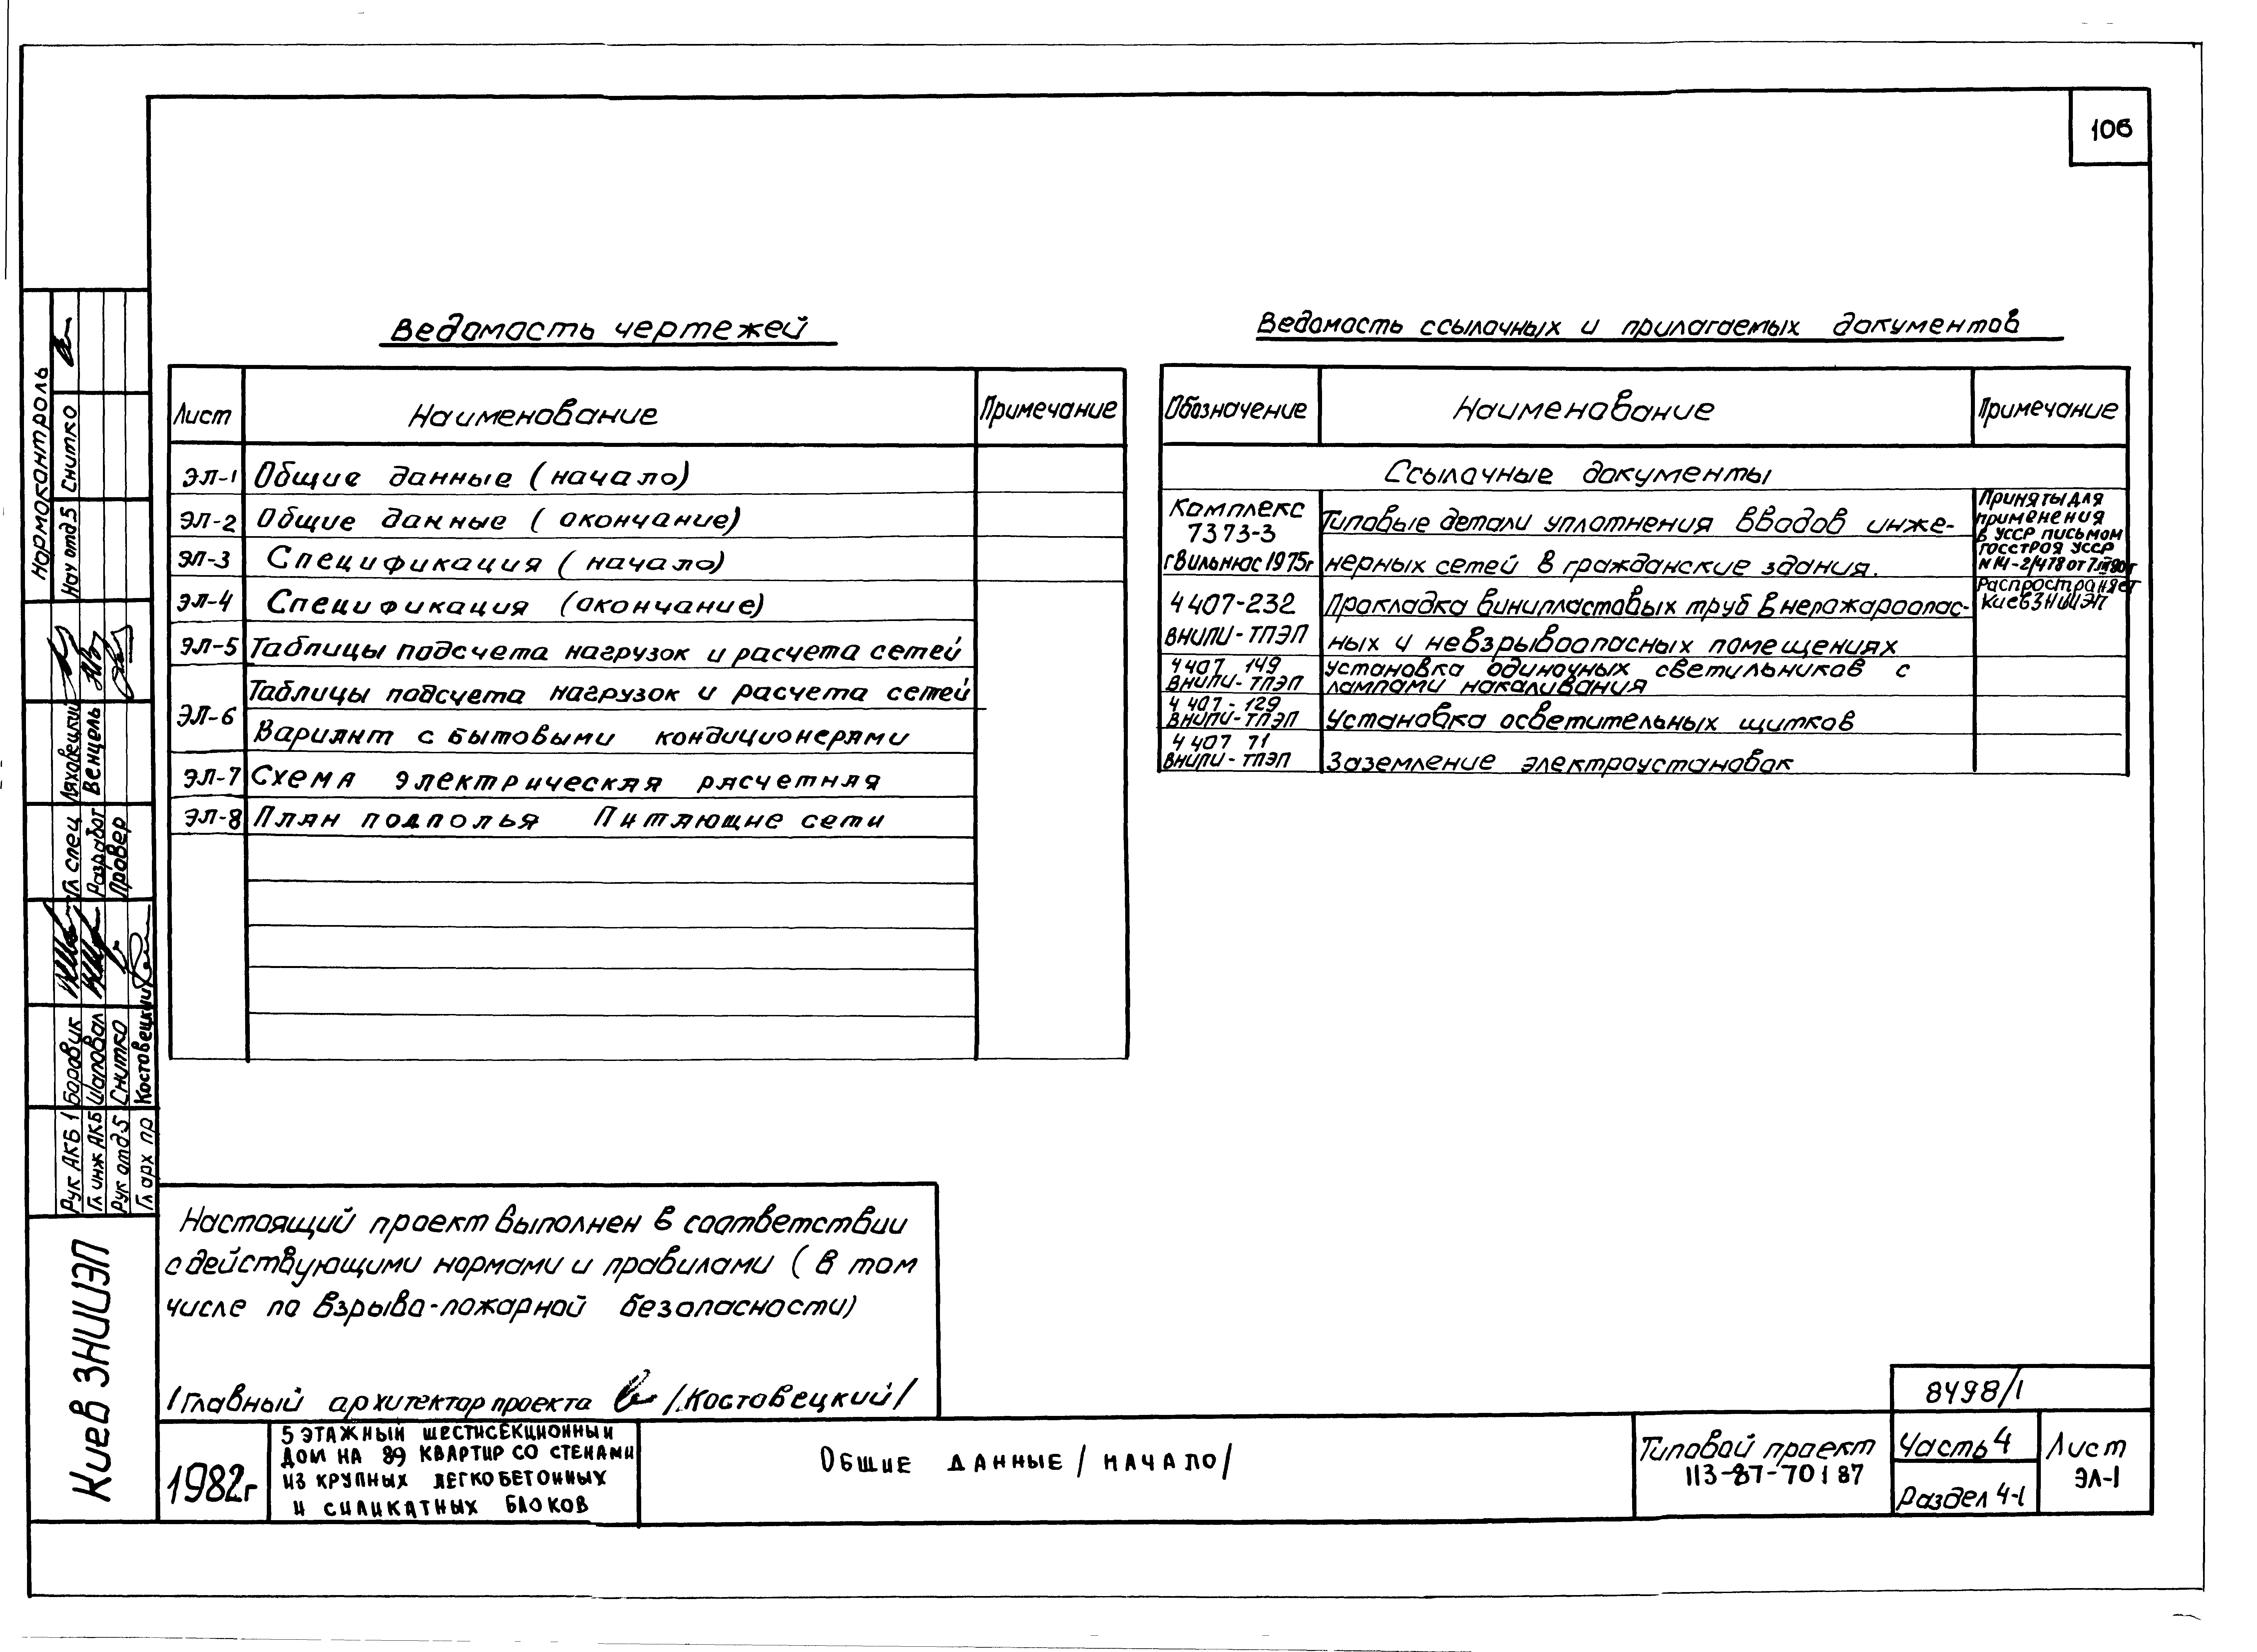 106
Ведомость чертежей
Лист Наименование Примечание
ЭЛ-1 Общие данные (начало)
ЭЛ-2 Общие данные (окончание)
ЭЛ-3 Спецификация (начало)
ЭЛ-4 Спецификация (окончание)
ЭЛ-5 Таблицы подсчета нагрузок и расчета сетей
ЭЛ-6 Таблицы подсчета нагрузок и расчета сетей
Вариант с бытовыми кондиционерами
ЭЛ-7 Схема электрическая расчетная
ЭЛ-8 План подполья Питающие сети
Ведомость ссылочных и прилагаемых документов
Обозначение Наименование Примечание
Ссылочные документы
Комплекс
7373-3
г Вильнюс 1975г
Типовые детали уплотнения вводов инже-
нерных сетей в гражданские здания.
Приняты для
применения
в УССР письмом
Госстроя УССР
N14-2/478 от
Распространяет
КиевЗНИИЭП
4407-232
ВНИПИ-ТПЭП
Прокладка винипластовых труб в непожароопас-
ных и невзрывоопасных помещениях
4407 149
ВНИПИ-ТПЭП
установка одиночных светильников с
лампами накаливания
4407-129
ВНИПИ-ТПЭП
Установка осветительных щитков
4407 71
ВНИПИ-ТПЭП
Заземление электроустановок
Настоящий проект выполнен в соответствии
с действующими нормами и правилами (в том
числе по взрыво-пожарной безопасности)
/Главный архитектор проекта /Костовецкий/
нормоконтроль
Нач отд 5 Снитко
Гл спец Ляховецкий
Разработ Венцель
Провер
Рук АКБ 1 Боровик
Гл инж АКБ Шаповал
Рук отд 5 Снитко
Гл арх пр Костовецкий
Киев ЗНИИЭП
1982г
5 этажный шестисекционный
дом на 89 квартир со стенами
из крупных легкобетонных
и силикатных блоков
Общие данные /начало/
Типовой проект
113-87-70187
8498/1
Часть 4
Раздел 4-1
Лист
ЭЛ-1